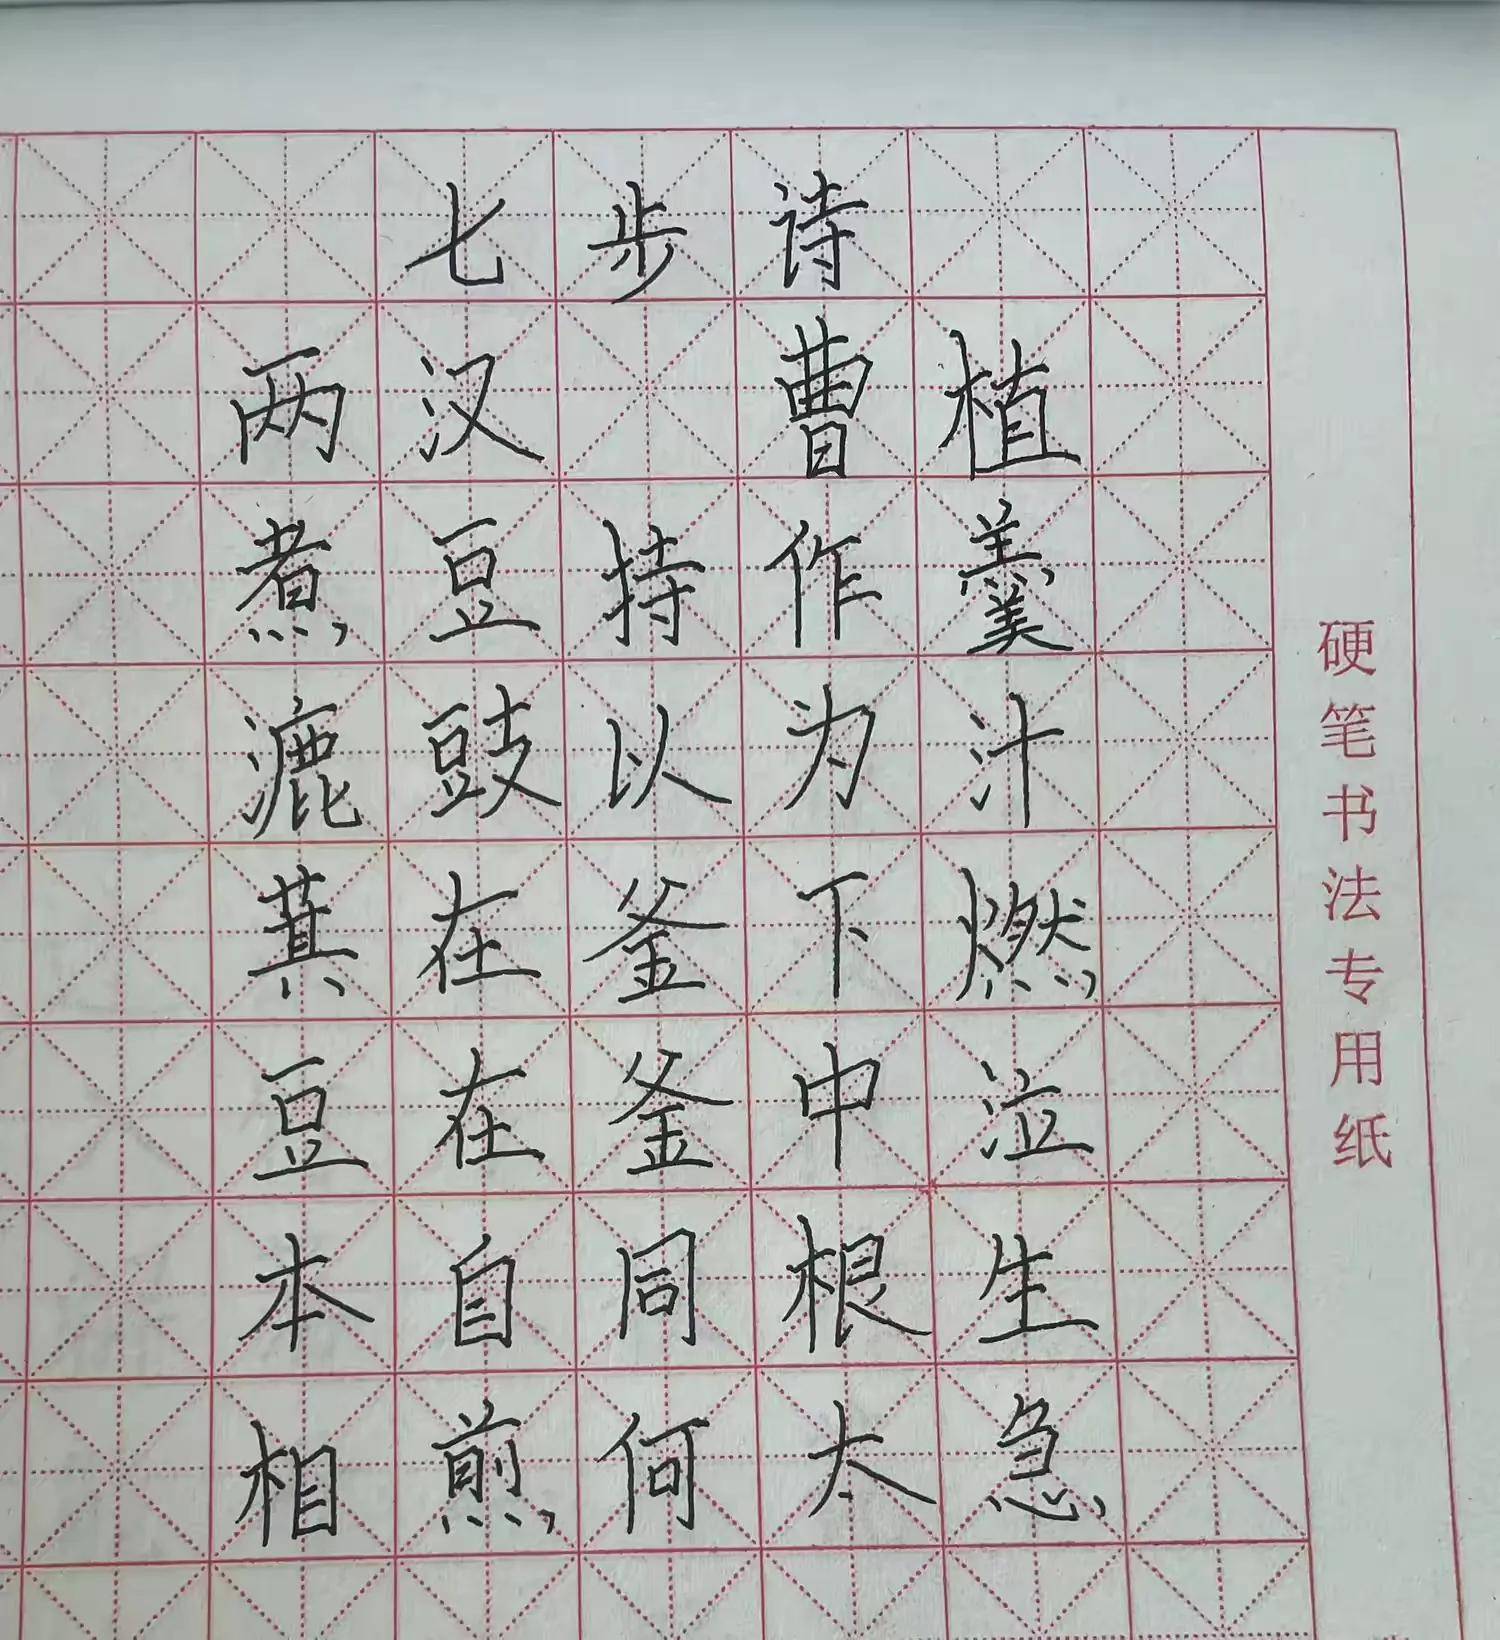 七步诗
两汉 曹植
煮豆持作羹
漉豉以为汁
萁在釜下燃
豆在釜中泣
本自同根生
相煎何太急
硬笔书法专用纸